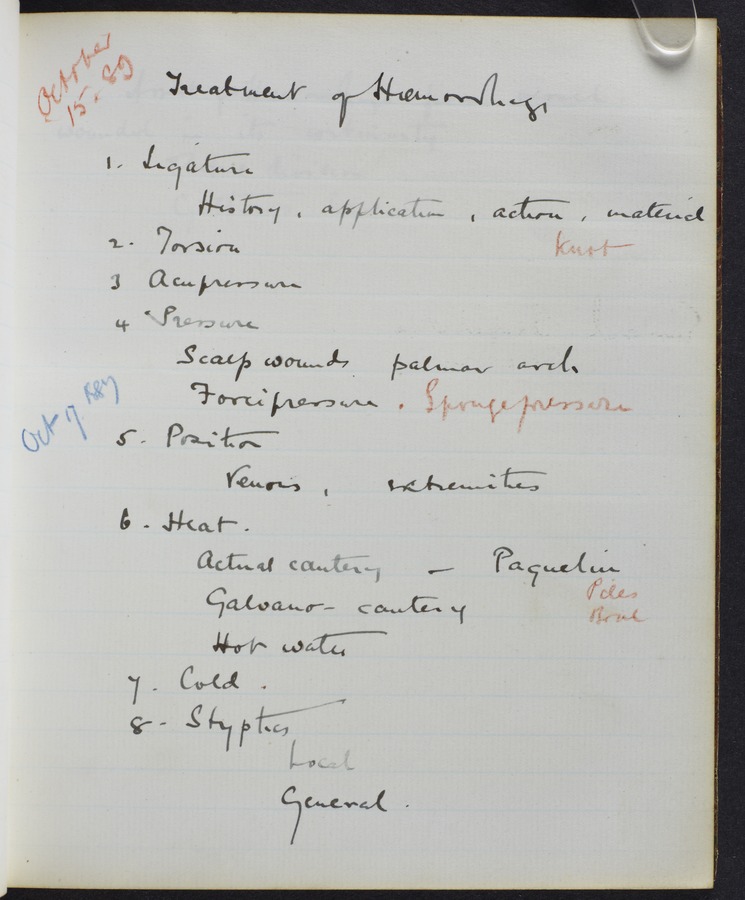 October
15. 89
Treatment of Hæmorrhage
1. Ligature
History, application, action, material
2. Torsion
Knot
3 Acupressure
4 Pressure
Scalp wounds palmar arch
Forcipressure. Spongepressure
Oct 17 1887
5. Position
Venous, extremities
6. Heat.
Actual cautery — Paquelin
Piles
Galvano-cautery
Hot water
7. Cold.
8. Styptics
Local
General.